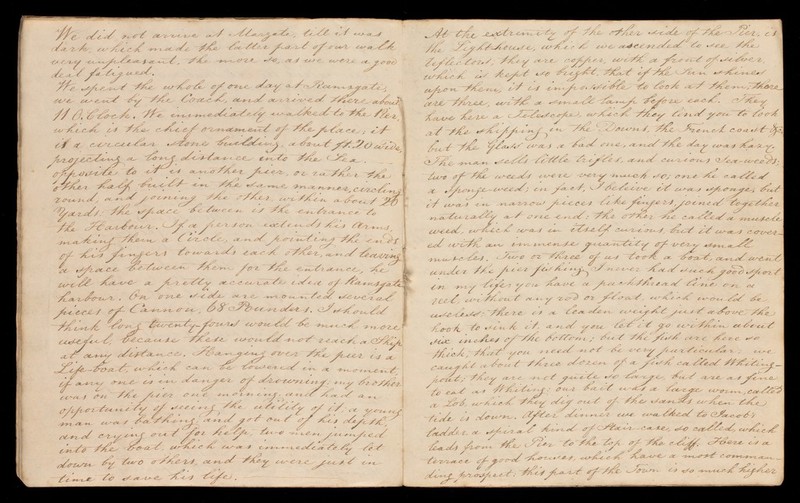 We did not arrive at Margate, till it was
dark, which made the latter part of our walk
very unpleasant, the more so, as we were a good
deal fatigued.
We spent the whole of one day at Ramsgate,
we went by the Coach, and arrived there about
11 O,Clock. We immediately walked to the Pier,
which is the chief ornament of the place, it
is a circular stone building, about ft. 20 wide,
projecting a long distance into the Sea.
opposite to it is another pier, or rather the
other half, built in the same manner, circling
round, and joining the other, within about 20
Yards; the space between is the entrance to
the Harbour. If a person extends his arms,
making them a Circle, and pointing the ends
of his fingers towards each other, and leaving
a space between them for the entrance, he
will have a pretty accurate idea of Ramsgate
harbour. On one side are mounted several
pieces of Cannon, 68 Pounders, I should
think long twenty-fours would be much more
useful, because these would not reach a Ship
at any distance, Hanging over the pier is a
Life-boat, which can be lowered in a moment,
if any one is in danger of drowning, my brother
was on the pier one morning, and had an
opportunity of seeing the utility of it, a young
man was bathing, and got out of his depth,
and crying out for help, two men jumped
into the boat, which was immediately let
down by two others, and they were just in
time to save his life.
At the extremity of the other side of the Pier, is
the Light-house, which we ascended to see the
reflectors; they are copper, with a front of silver,
which is kept so bright, that if the Sun shines
upon them, it is impossible to look at them, there
are three, with a small lamp before each. They
have here a Telescope, which they lend you to look
at the shipping in the Downs, the French coast &c
but the Glass was a bad one, and the day was hazy.
The man sells little trifles, and curious Sea-weeds;
two of the weeds were very much so; one he called
a sponge-weed; in fact, I beleive it was sponge, but
it was in narrow pieces like fingers, joined together
naturally at one end; the other he called a muscle
weed, which was in itself curious, but it was cover-
ed with an immense quantity of very small
muscles. Two or three of us took a boat, and went
under the pier fishing, I never had such good sport
in my life; you have a packthread line on a
reel without any rod or float, which would be
useless; there is a leaden weight just above the
hook to sink it, and you let it go within about
six inches of the bottom; but the fish are here so
thick, that you need not be very particular; we
caught about three dozen of a fish called Whiting-
pout; they are not quite so large, but are as fine
to eat as Whiting; our bait was a large worm, called
a Lob, which they dig out of the sands when the
tide is down. After dinner we walked to Jacob's
ladder, a spiral kind of Stair-case, so called, which
leads from the Pier to the top of the cliff. Here is a
terrace of good houses, which have a most comman-
ding prospect; this part of the Town is so much higher